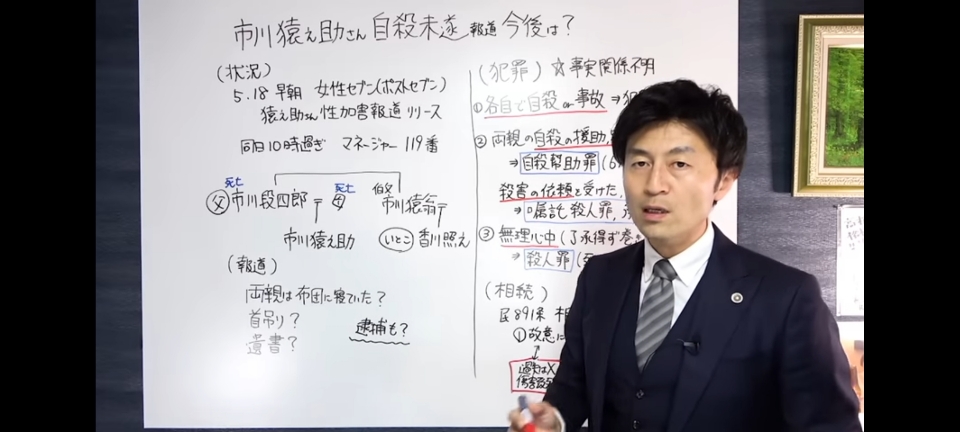 市川猿之助さん 自殺未遂 報道 今後は?
(状況)
5.18 早朝 女性セブン(ポストセブン)
猿之助さん 性加害報道 リリース
同日10時過ぎ マネージャー 119番
死亡 死亡 伯父
父 市川段四郎 母 市川猿翁
市川猿之助 いとこ 香川照之
(報道)
両親は布団に寝ていた?
首吊り?
遺書?
逮捕も?
(犯罪) ☆事実関係不明
① 各自で自殺 or 事故 ⇒ 犯
② 両親の自殺の援助、
⇒ 自殺幇助罪 (6
殺害の依頼を受けた、
⇒ 嘱託殺人罪、
③ 無理心中 (了承得ず巻き
⇒ 殺人罪
(相続)
民891条 相
① 故意に
↕
過失はX
傷害致死